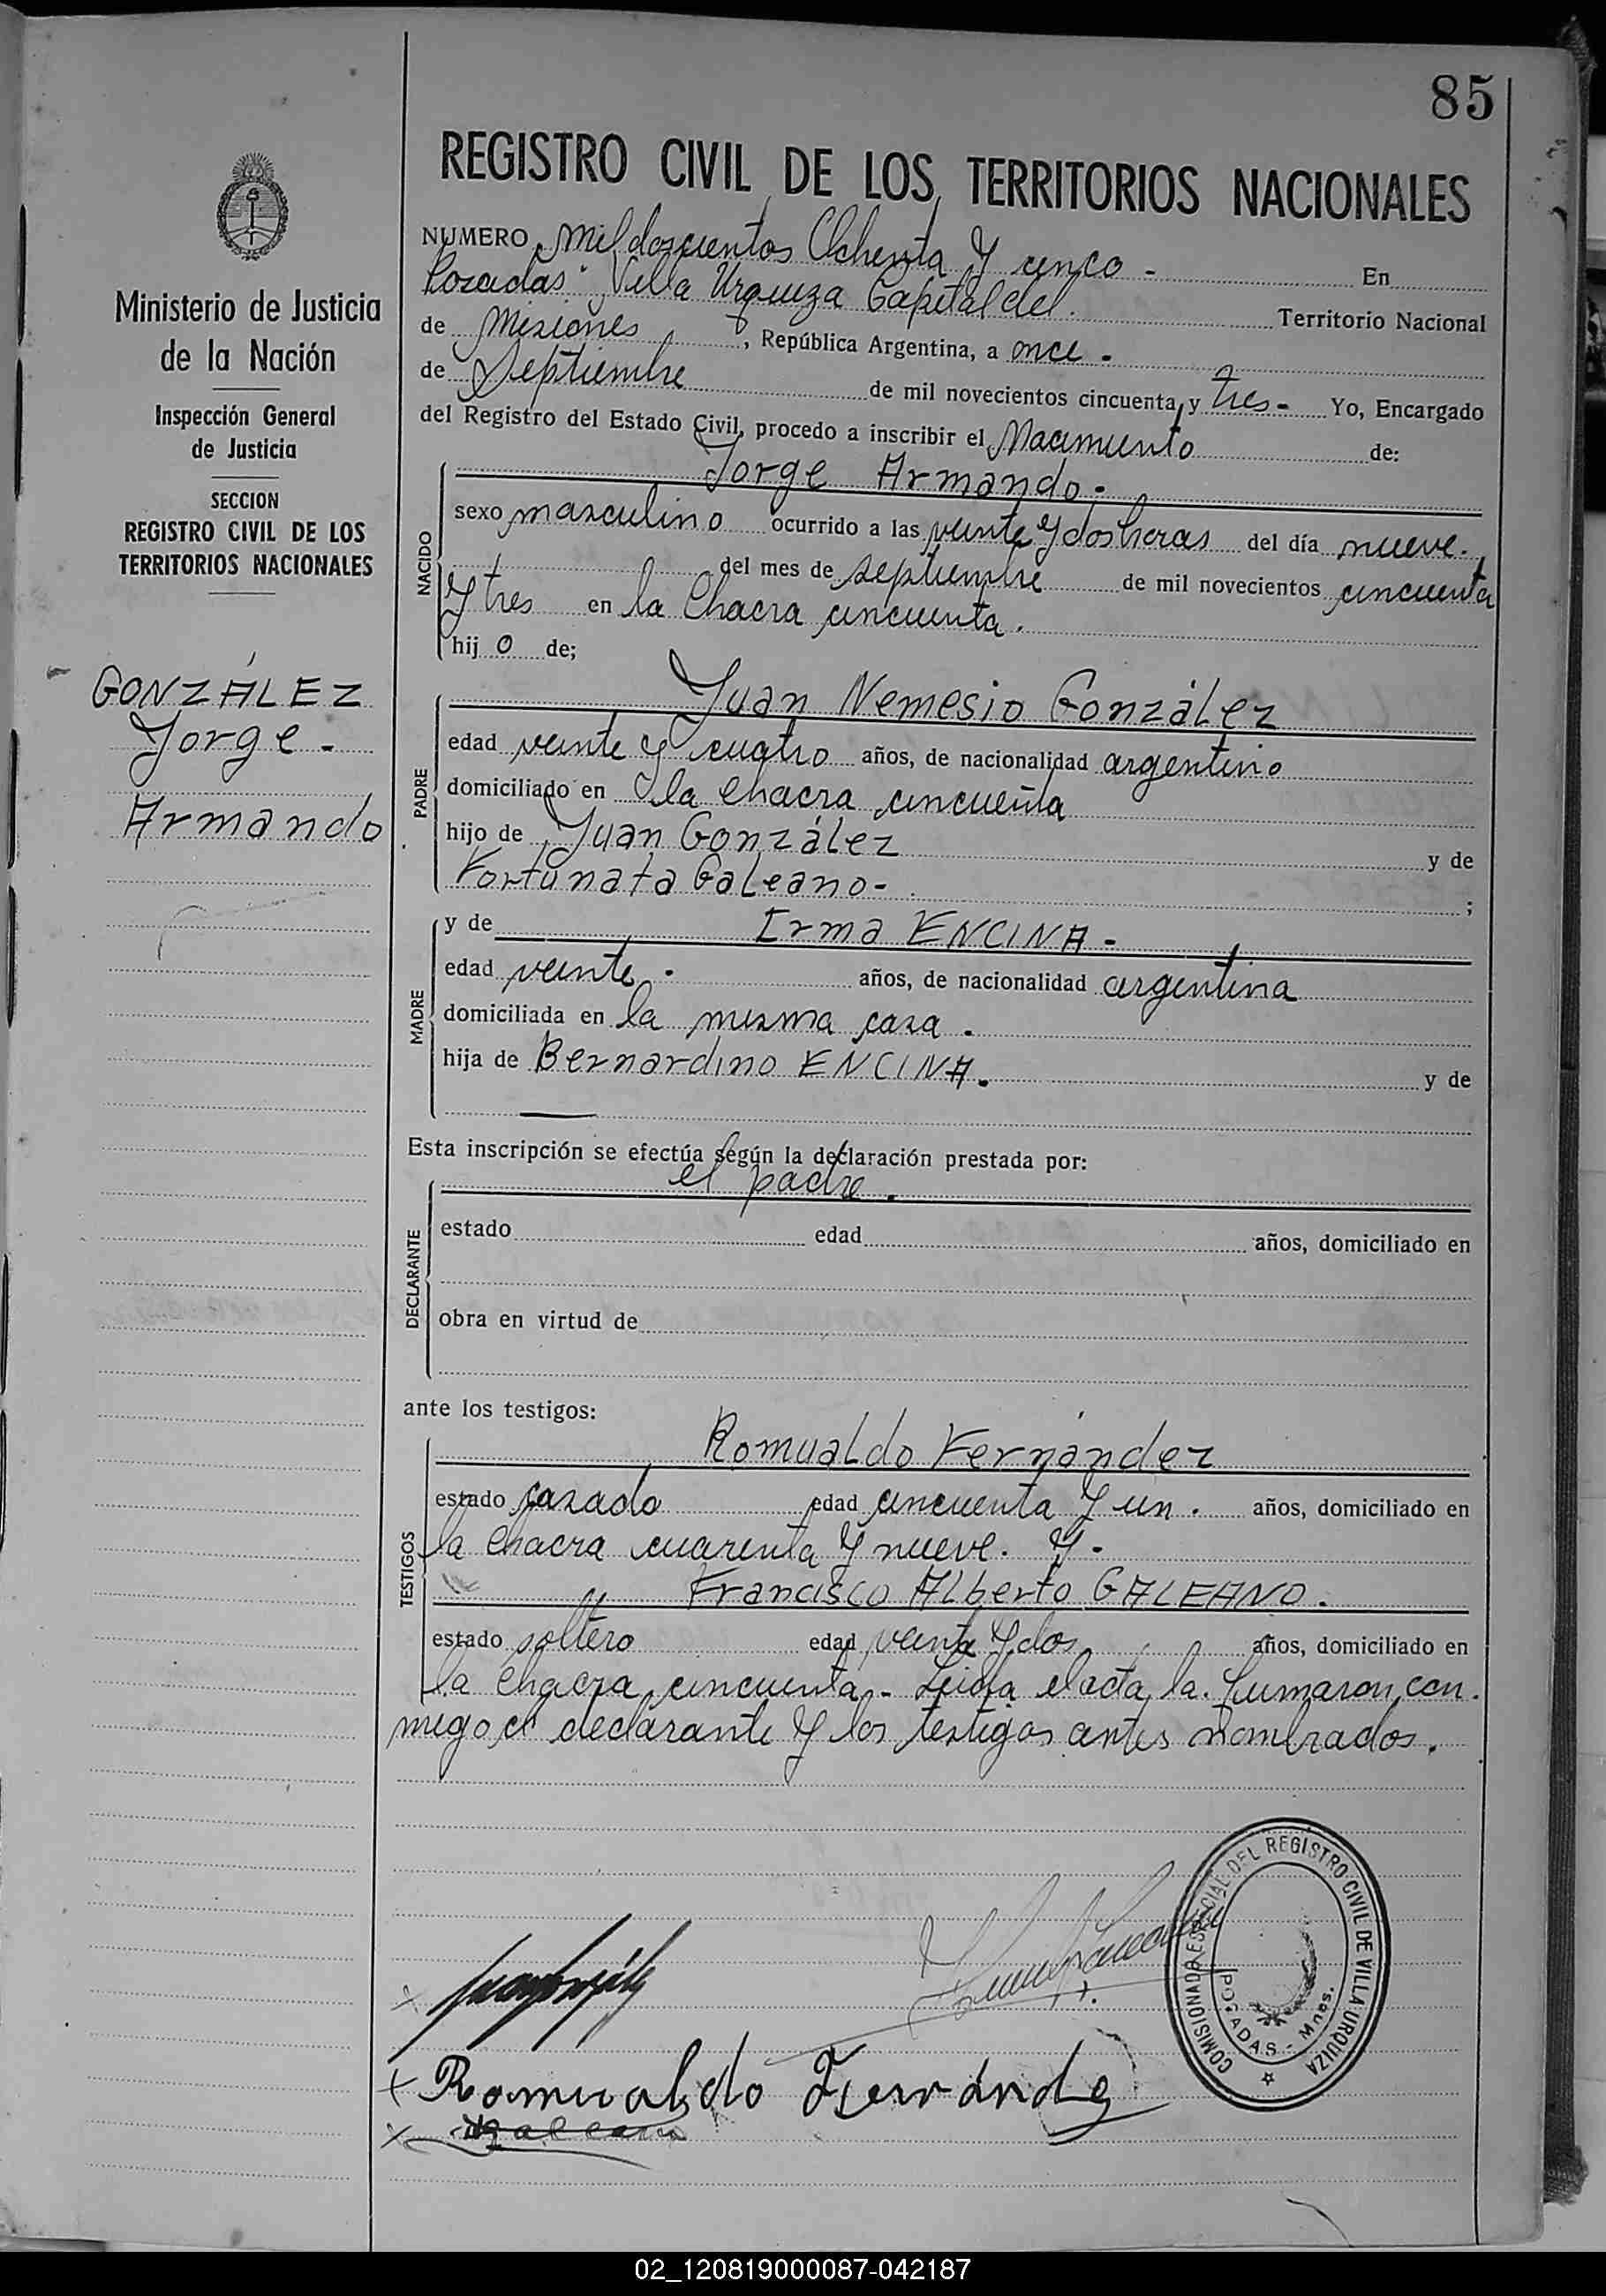 85
REGISTRO CIVIL DE LOS TERRITORIOS NACIONALES
Ministerio de Justicia
de la Nación
Inspección General
de Justicia
SECCION
REGISTRO CIVIL DE LOS
TERRITORIOS NACIONALES
GONZÁLEZ
Jorge -
Armando
NUMERO Mil doscientos Ochenta y cinco - En
Posadas Villa Urquiza Capital del Territorio Nacional
de Misiones, República Argentina, a once -
de Septiembre de mil novecientos cincuenta y tres - Yo, Encargado
del Registro del Estado Civil, procedo a inscribir el Nacimiento de:
Jorge Armando -
NACIDO
sexo masculino ocurrido a las veinte y dos horas del día nueve.
del mes de septiembre de mil novecientos cincuenta
y tres en la Chacra cincuenta.
hij o de;
Juan Nemesio González
PADRE
edad veinte y cuatro años, de nacionalidad argentino
domiciliado en la chacra cincuenta
hijo de Juan González y de
Fortunata Galeano - ;
y de Irma ENCINA -
MADRE
edad veinte. años, de nacionalidad argentina
domiciliada en la misma casa.
hija de Bernardino ENCINA. y de
—
Esta inscripción se efectúa según la declaración prestada por:
el padre.
DECLARANTE
estado edad años, domiciliado en
obra en virtud de
ante los testigos:
Romualdo Fernández
TESTIGOS
estado casado edad cincuenta y un. años, domiciliado en
la chacra cuarenta y nueve. y -
Francisco Alberto GALEANO.
estado soltero edad veinte y dos años, domiciliado en
la chacra cincuenta - Leida el acta, la firmaron con-
migo el declarante y los testigos antes nombrados.
COMISIONADO ESPECIAL DEL REGISTRO CIVIL DE VILLA URQUIZA
POSADAS - Mnes.
x
x Romualdo Fernández
x Galeano
02_120819000087-042187